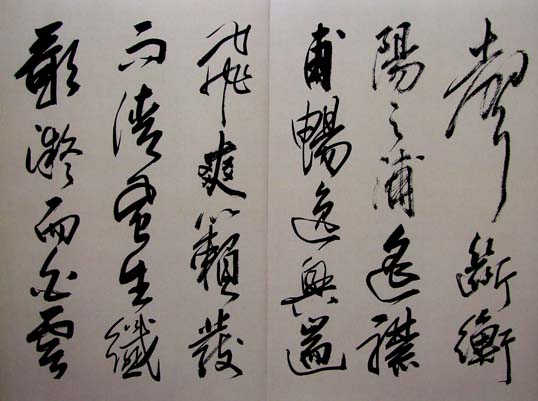 聲斷衡
陽之浦遙襟
甫暢逸興遄
飛爽籟發
而清風生纖
歌凝而白雲